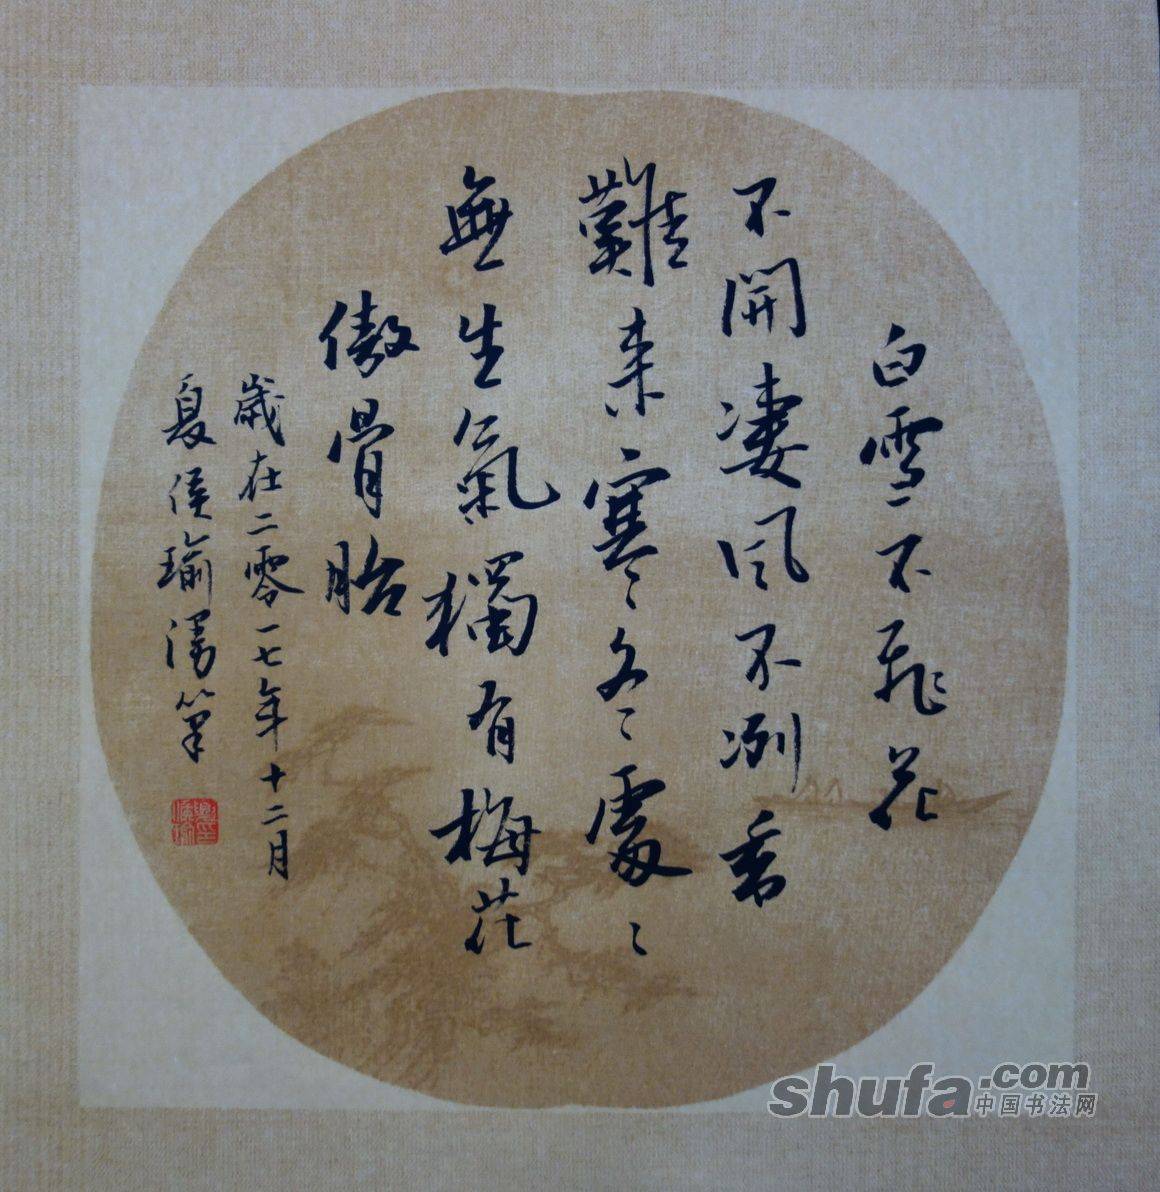 白雪不飛花
不開凄风不冽香
難来寒冬冬處處
無生氣獨有梅花
傲骨胎
歲在二零一七年十二月
夏侯瑜湧筆
shufa.com
中国书法网